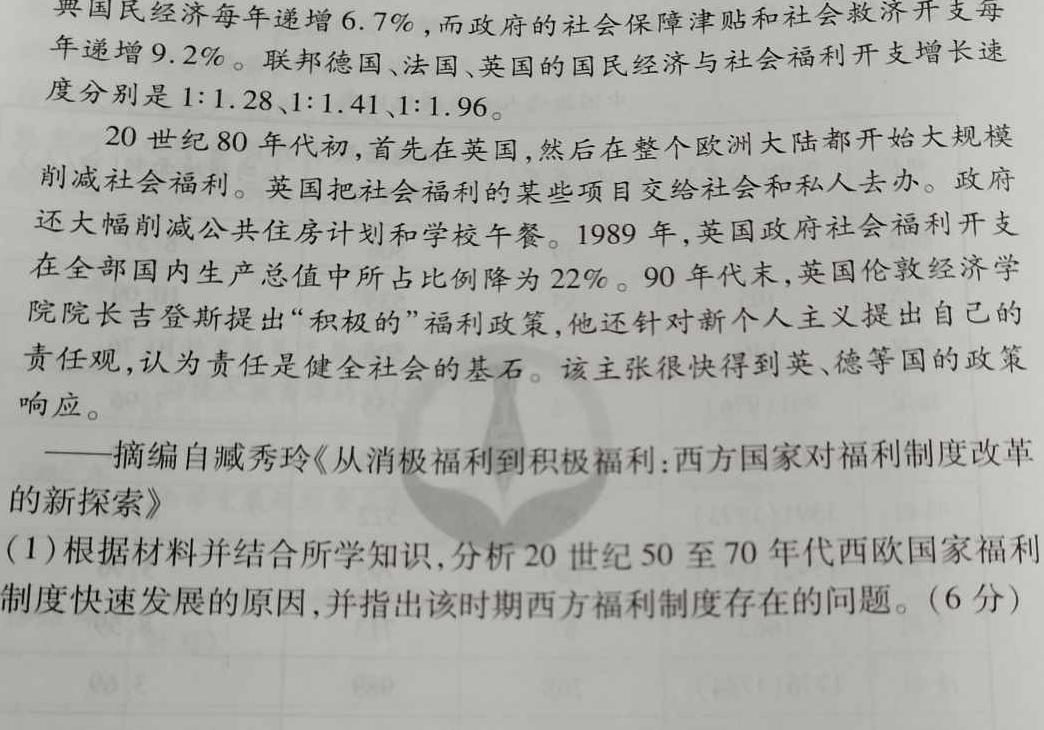 典国民经济每年递增6.7%,而政府的社会保障津贴和社会救济开支每
年递增9.2%。联邦德国、法国、英国的国民经济与社会福利开支增长速
度分别是1∶1.28、1∶1.41、1∶1.96。
20世纪80年代初,首先在英国,然后在整个欧洲大陆都开始大规模
削减社会福利。英国把社会福利的某些项目交给社会和私人去办。政府
还大幅削减公共住房计划和学校午餐。1989年,英国政府社会福利开支
在全部国内生产总值中所占比例降为22%。90年代末,英国伦敦经济学
院院长吉登斯提出“积极的”福利政策,他还针对新个人主义提出自己的
责任观,认为责任是健全社会的基石。该主张很快得到英、德等国的政策
响应。
——摘编自臧秀玲《从消极福利到积极福利:西方国家对福利制度改革
的新探索》
(1)根据材料并结合所学知识,分析20世纪50至70年代西欧国家福利
制度快速发展的原因,并指出该时期西方福利制度存在的问题。(6分)